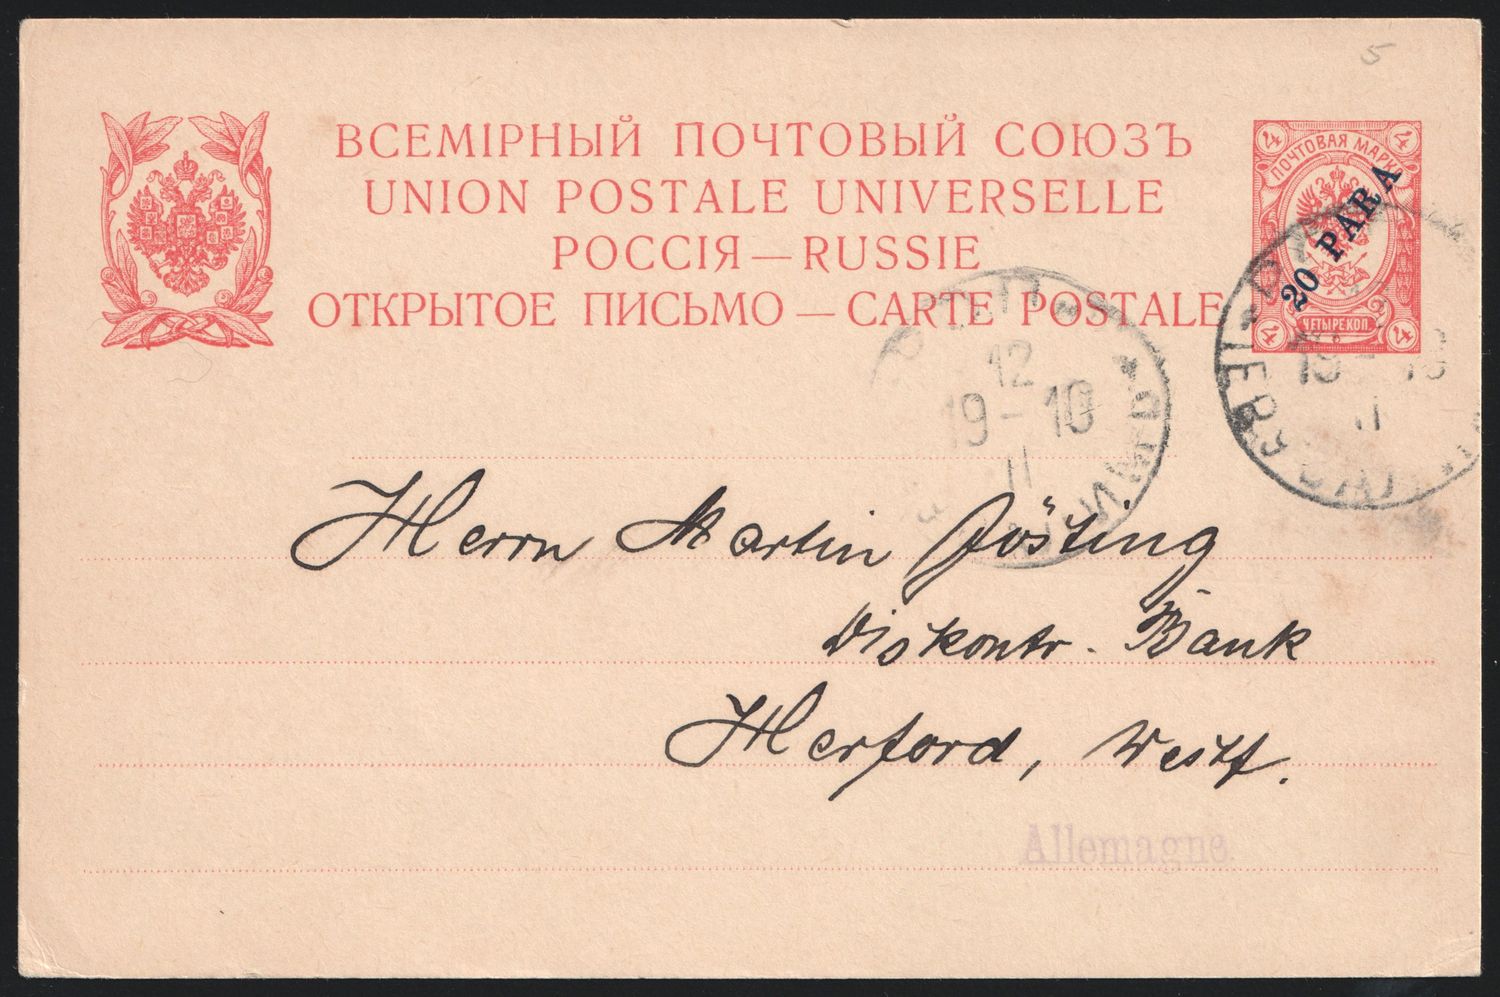 5
ВСЕМІРНЫЙ ПОЧТОВЫЙ СОЮЗЪ
UNION POSTALE UNIVERSELLE
РОССІЯ — RUSSIE
ОТКРЫТОЕ ПИСЬМО — CARTE POSTALE
4 4
ПОЧТОВАЯ МАРКА
20 PARA
4 ЧЕТЫРЕ КОП. 4
12
19-10
11
19
11
Herrn Martin Jösting
Diskontr. Bank
Herford, Westf.
Allemagne